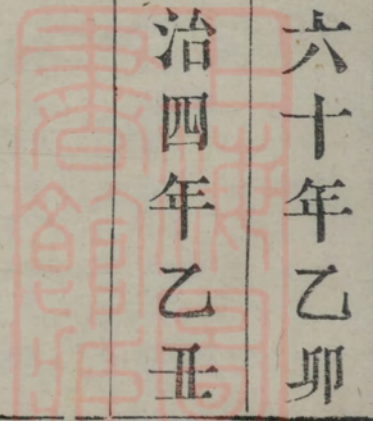 六十年乙卯
治四年乙丑